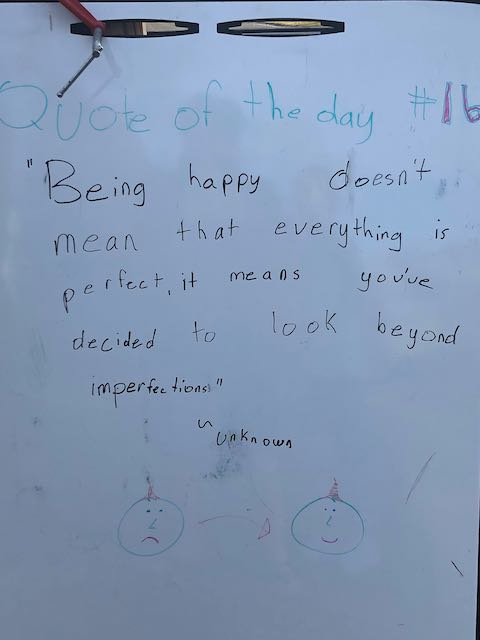 Quote of the day #16
"Being happy doesn't
mean that everything is
perfect, it means you've
decided to look beyond
imperfections."
~ unknown